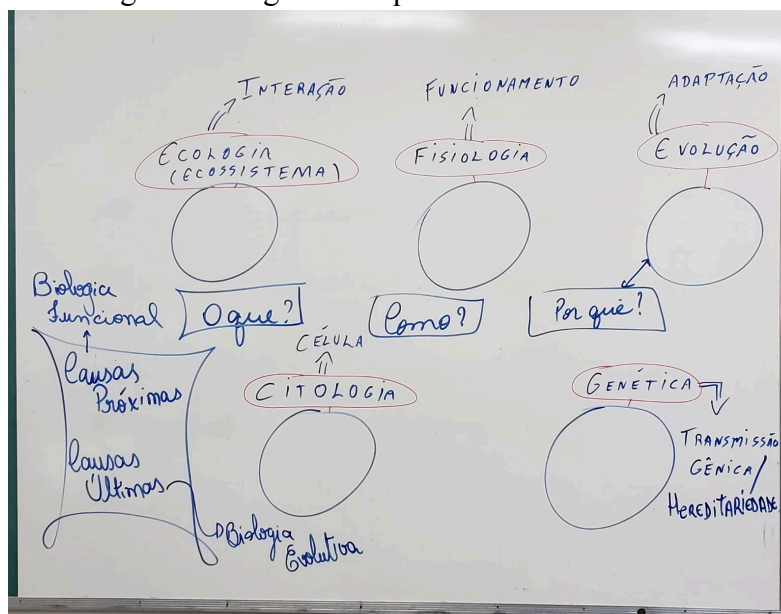 INTERAÇÃO
ECOLOGIA
(ECOSSISTEMA)
FUNCIONAMENTO
FISIOLOGIA
ADAPTAÇÃO
EVOLUÇÃO
Biologia
Funcional
O que?
Como?
Por quê?
Causas
Próximas
Causas
Últimas
Biologia
Evolutiva
CÉLULA
CITOLOGIA
GENÉTICA
TRANSMISSÃO
GÊNICA/
HEREDITARIEDADE